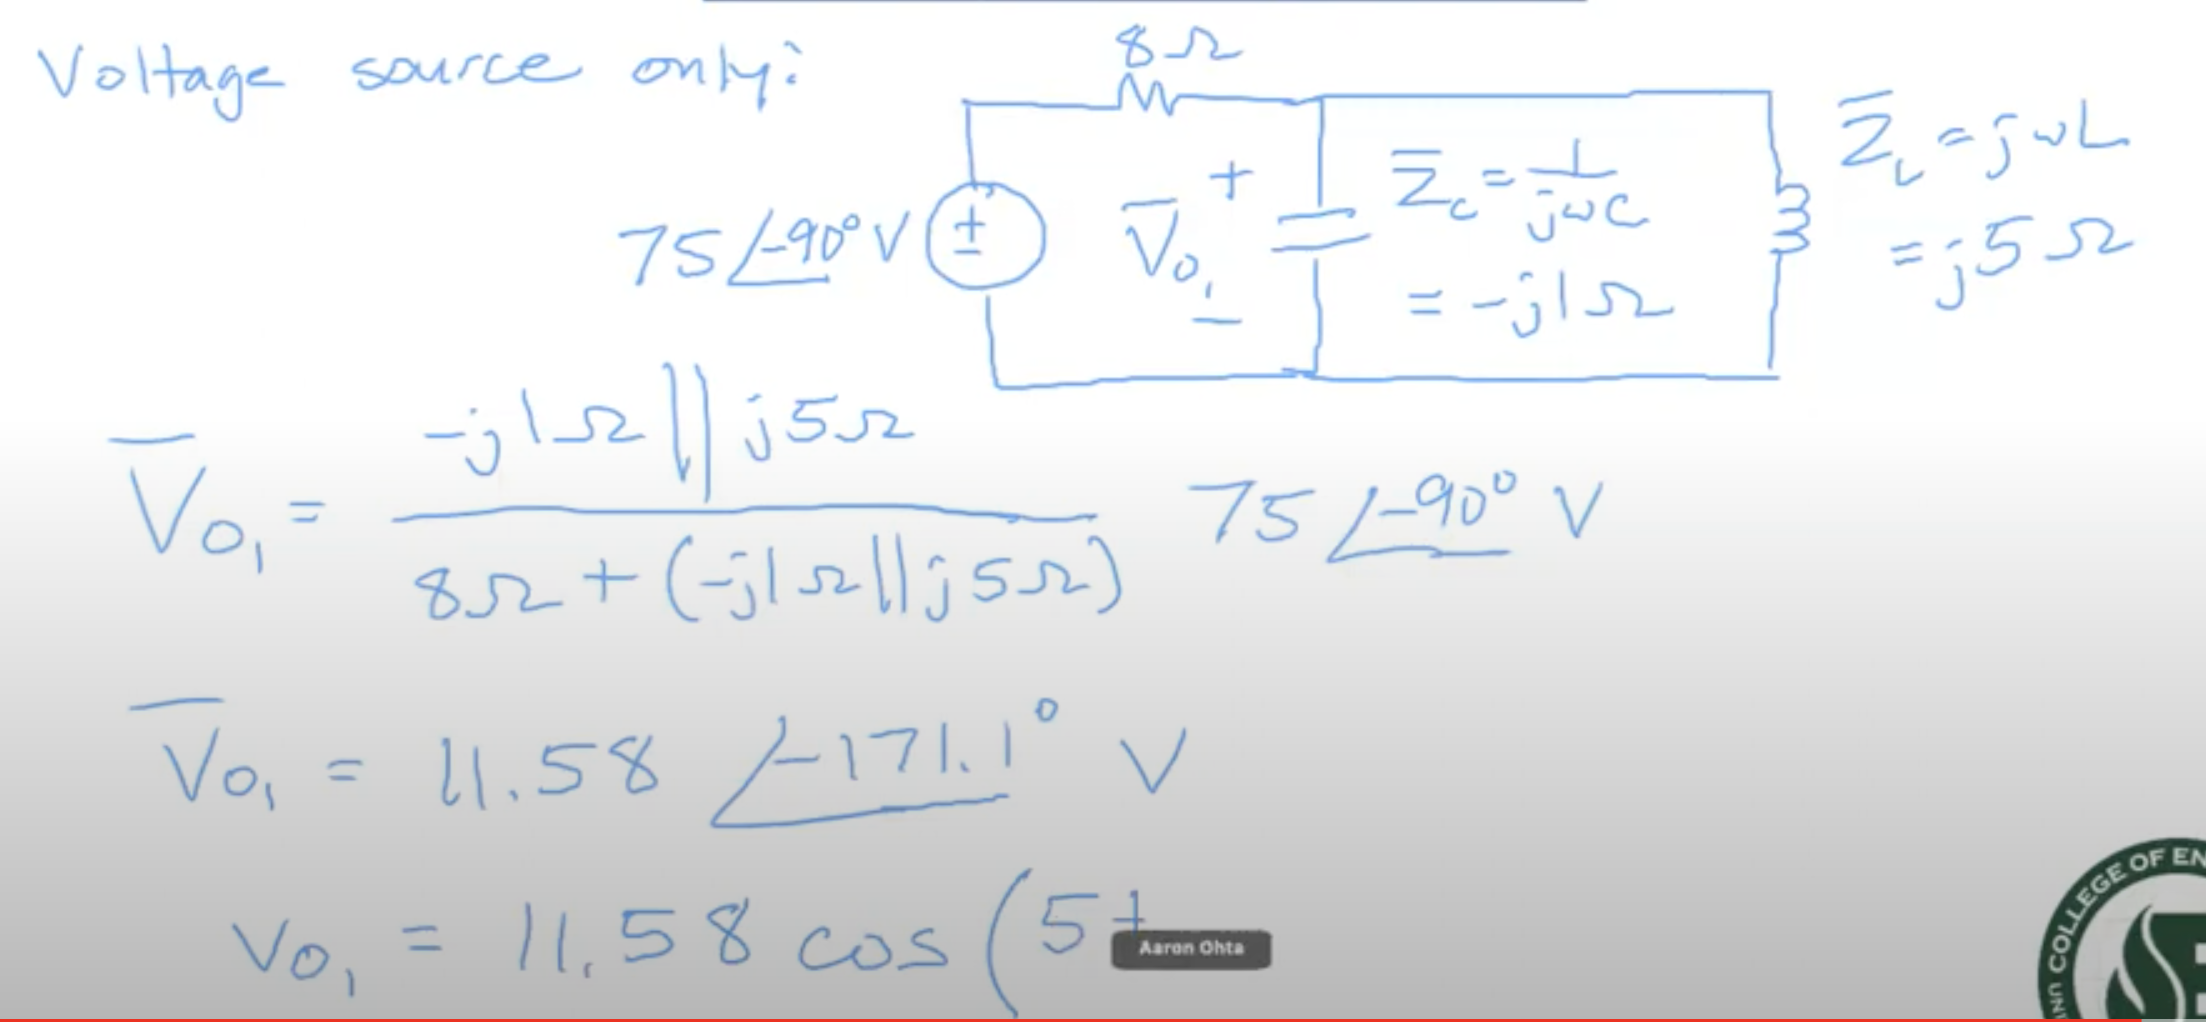 Voltage source only:
8Ω
75∠-90° V
+
-
+
V̄o₁
-
Z̄c = 1/jωC
= -j1Ω
Z̄L = jωL
= j5Ω
V̄o₁ = (-j1Ω || j5Ω) / (8Ω + (-j1Ω || j5Ω)) 75∠-90° V
V̄o₁ = 11.58 ∠-171.1° V
vo₁ = 11.58 cos(5t
Aaron Ohta
COLLEGE OF EN